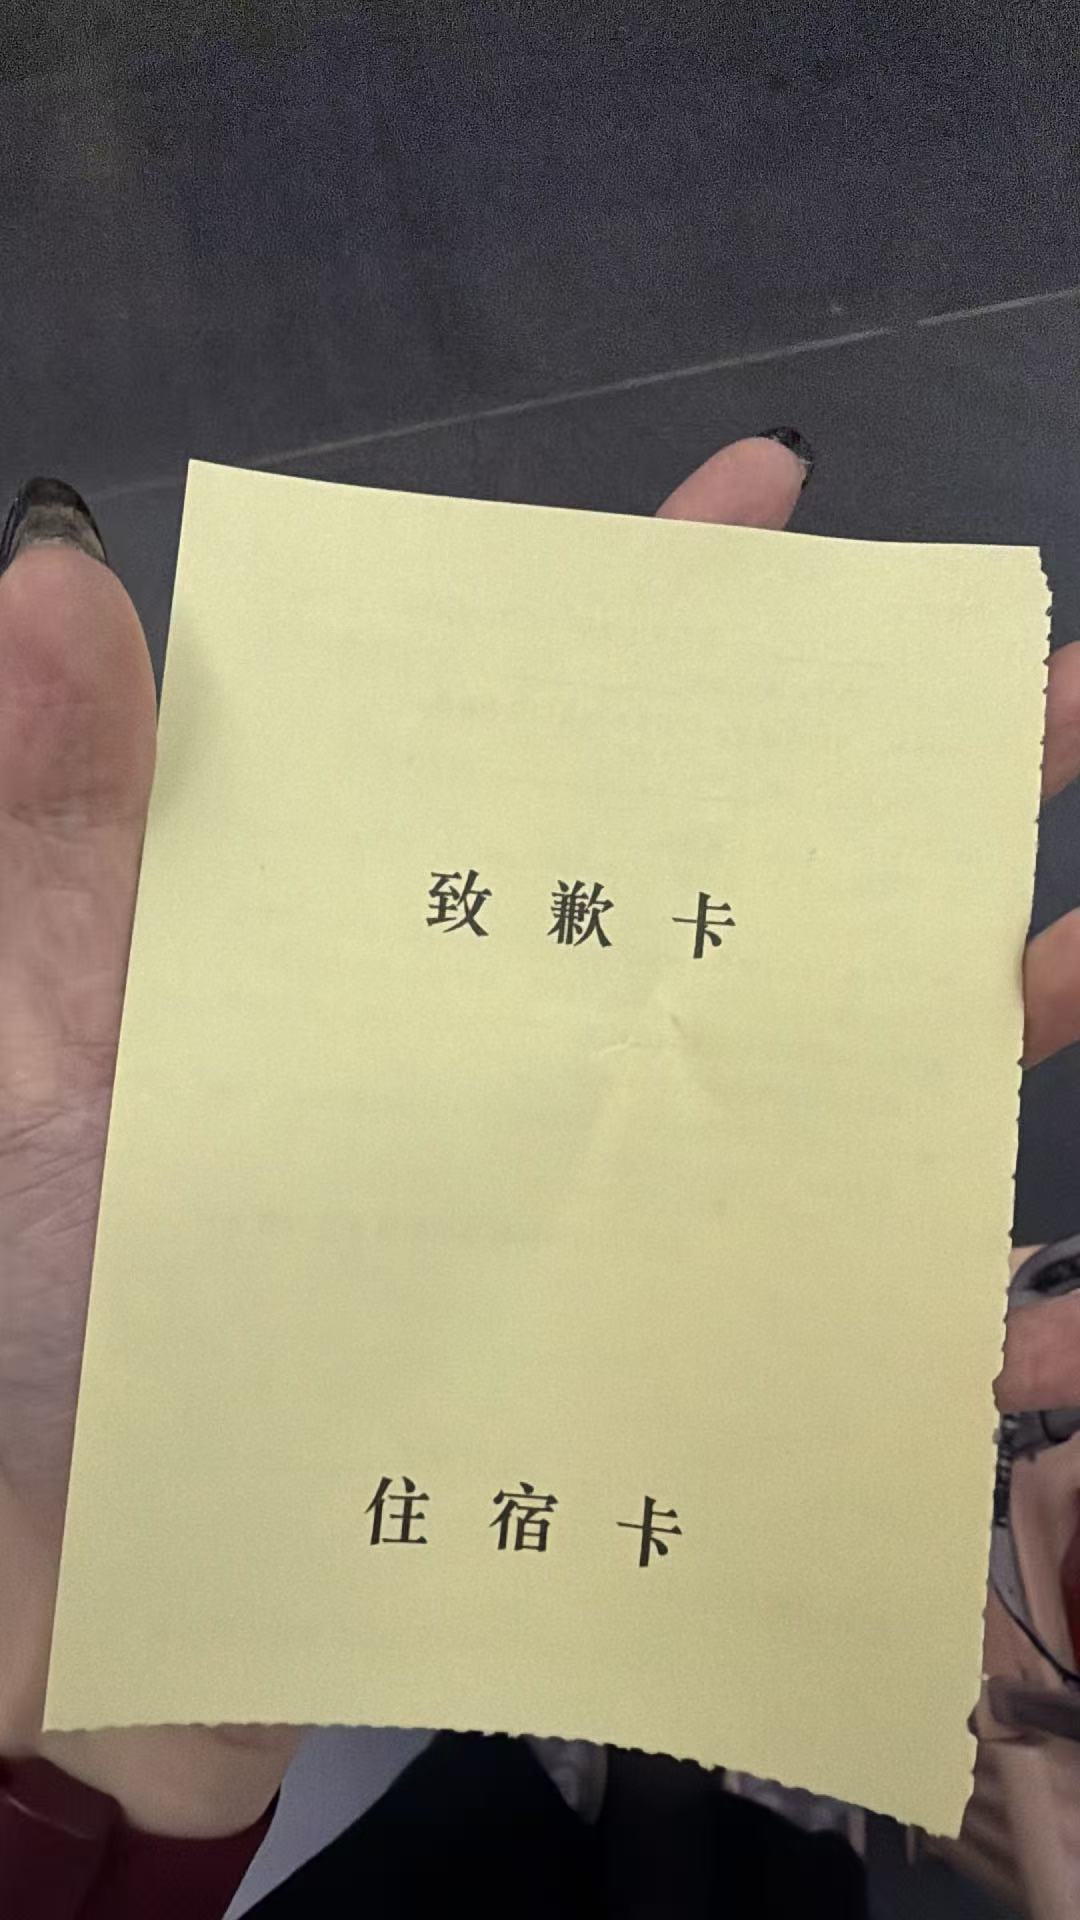 致歉卡
住宿卡